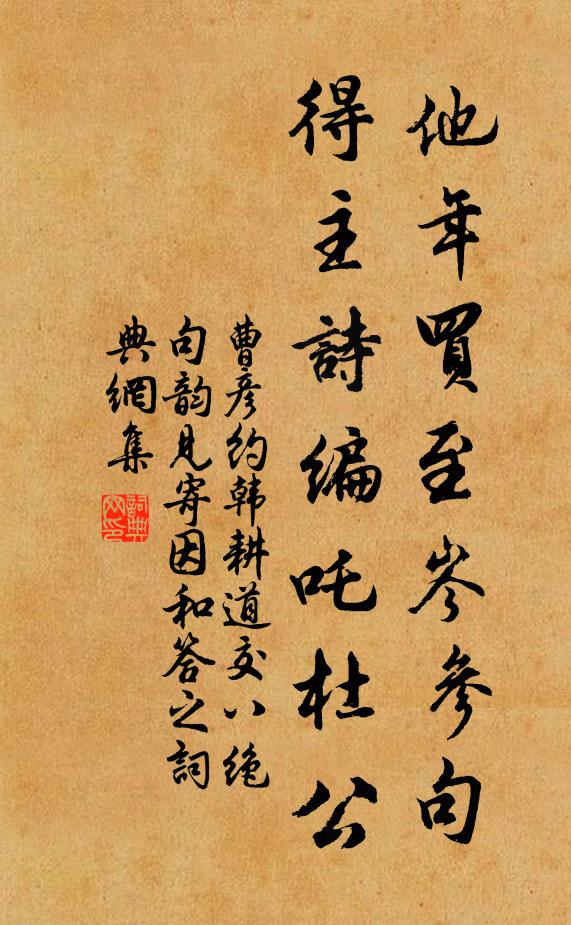 他年買至岑參句
得主詩編吒杜公
曹彦约韩耕道交八绝
句韵見寄因和答之詞
典網集
詞典网印